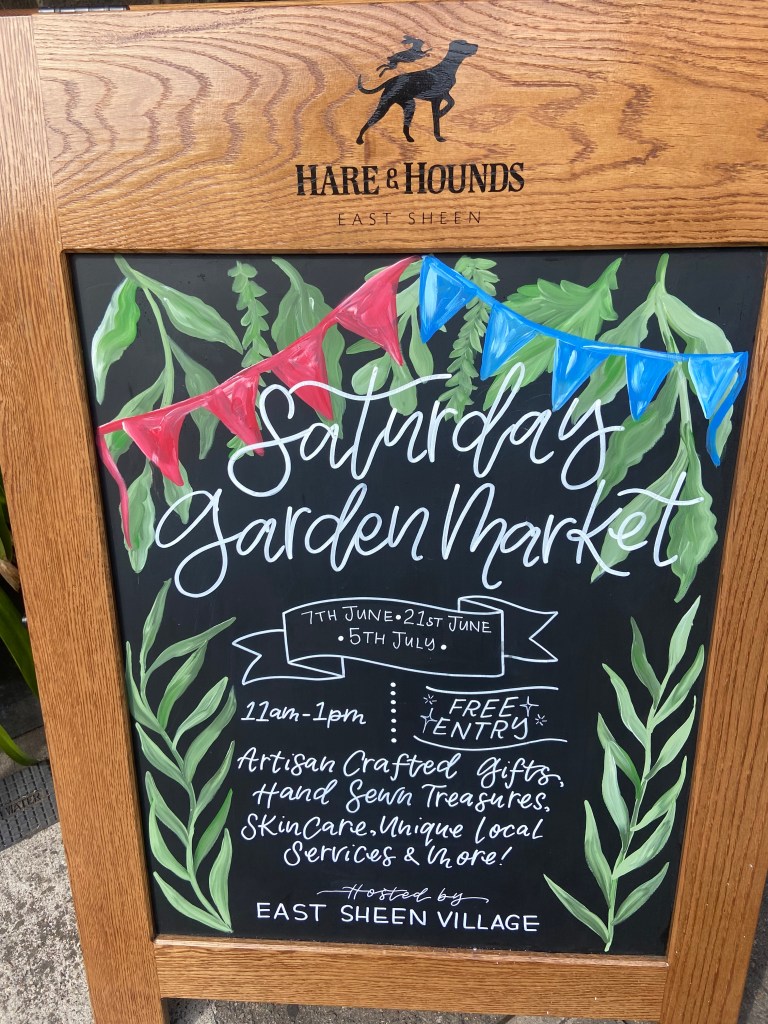 HARE & HOUNDS
EAST SHEEN
Saturday
Garden Market
7TH JUNE • 21ST JUNE
• 5TH JULY •
11am-1pm
FREE
ENTRY
Artisan Crafted Gifts,
Hand Sewn Treasures,
SkinCare, Unique Local
Services & More!
Hosted by
EAST SHEEN VILLAGE
WATER